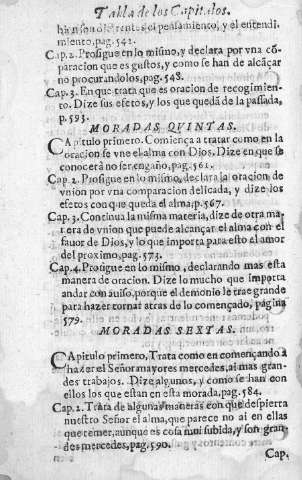 Tabla de los Capitulos.
diferentes el pensamiento, y el entendi-
miento, pag. 542.
Cap. 2. Prosigue en lo mismo, y declara por vna cõ-
paracion que es gustos, y como se han de alcãçar
no procurandolos, pag. 548.
Cap. 3. En que trata que es oracion de recogimien-
to. Dize sus efetos, y los que quedã de la passada,
p. 593.
MORADAS QVINTAS.
CApitulo primero. Comiença a tratar como en la
oracion se vne el alma con Dios. Dize en que se
conocerà no ser engaño, pag. 561.
Cap. 2. Prosigue en lo mismo, declara la oracion de
vnion por vna comparacion delicada, y dize los
efetos con que queda el alma, p. 567.
Cap. 3. Continua la misma materia, dize de otra ma-
nera de vnion que puede alcançar el alma con el
fauor de Dios, y lo que importa para esto el amor
del proximo, pag. 573.
Cap. 4. Prosigue en lo mismo, declarando mas esta
manera de oracion. Dize lo mucho que importa
andar con auiso, porque el demonio le trae grande
para hazer tornar atras de lo començado, pagina
579.
MORADAS SEXTAS.
CApitulo primero, Trata como en començando a
hazer el Señor mayores mercedes, ai mas gran-
des trabajos. Dize algunos, y como se han con
ellos los que estan en esta morada, pag. 584.
Cap. 2. Trata de algunas maneras con que despierta
nuestro Señor el alma, que parece no ai en ellas
que temer, aunque es cosa mui subida, y son gran-
des mercedes, pag. 590.
Cap.